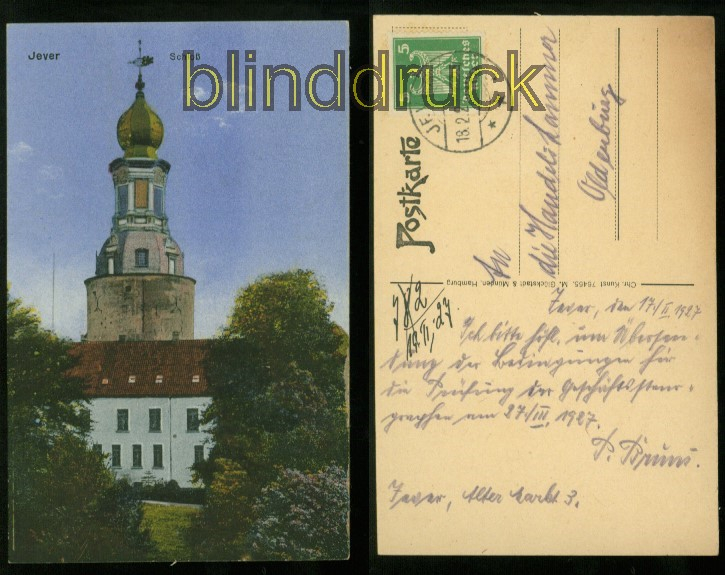 Jever Schloß
blinddruck
5
18.2.
Postkarte
An
die Handels-Kammer
Oldenburg
Chr. Kunst 76455. M. Glückstadt & Münden, Hamburg
Jever, den 17./II 1927
Ich bitte höfl. um Übersen-
dung der Bedingungen für
die Prüfung der Geschäftssteno-
graphen am 27./III. 1927.
P. Bruns.
Jever, Alter Markt 3.